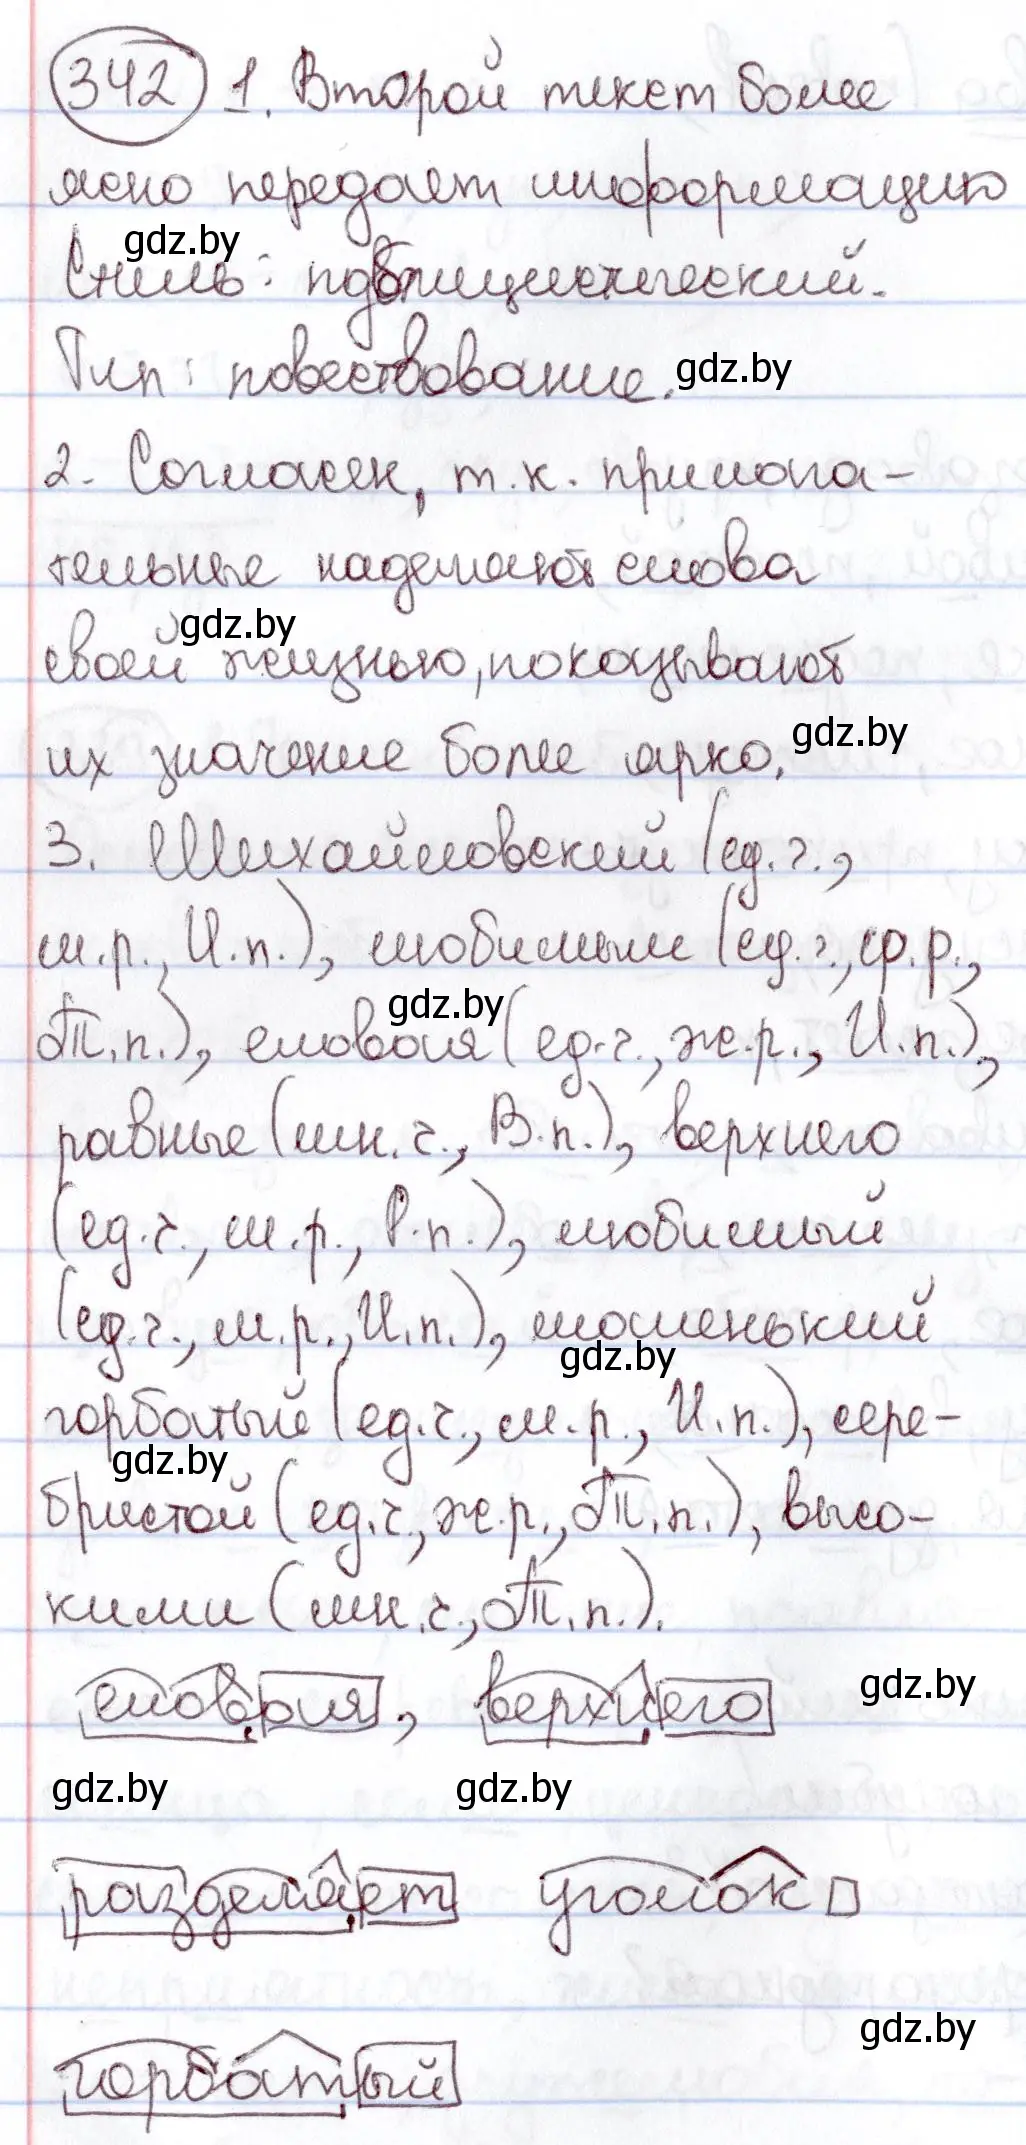 342 1. Второй текст более
ясно передает информацию
gdz.by
Стиль: публицистический.
Тип: повествование. gdz.by
2. Согласен, т.к. прилага-
тельные наделяют слова
gdz.by
своей жизнью, показывают
их значение более ярко. gdz.by
3. Михайловский (ед.ч.,
м.р., И.п.), любимым (ед.ч., ср.р.,
gdz.by
Т.п.), еловая (ед.ч., ж.р., И.п.),
равные (мн.ч., В.п.), верхнего
(ед.ч., м.р., Р.п.), любимый
(ед.ч., м.р., И.п.), маленький
gdz.by
горбатый (ед.ч., м.р., И.п.), сере-
gdz.by
бристой (ед.ч., ж.р., Т.п.), высо-
кими (мн.ч., Т.п.).
еловая, верхнего gdz.by
gdz.by gdz.by
разделяет уголок
gdz.by
горбатый